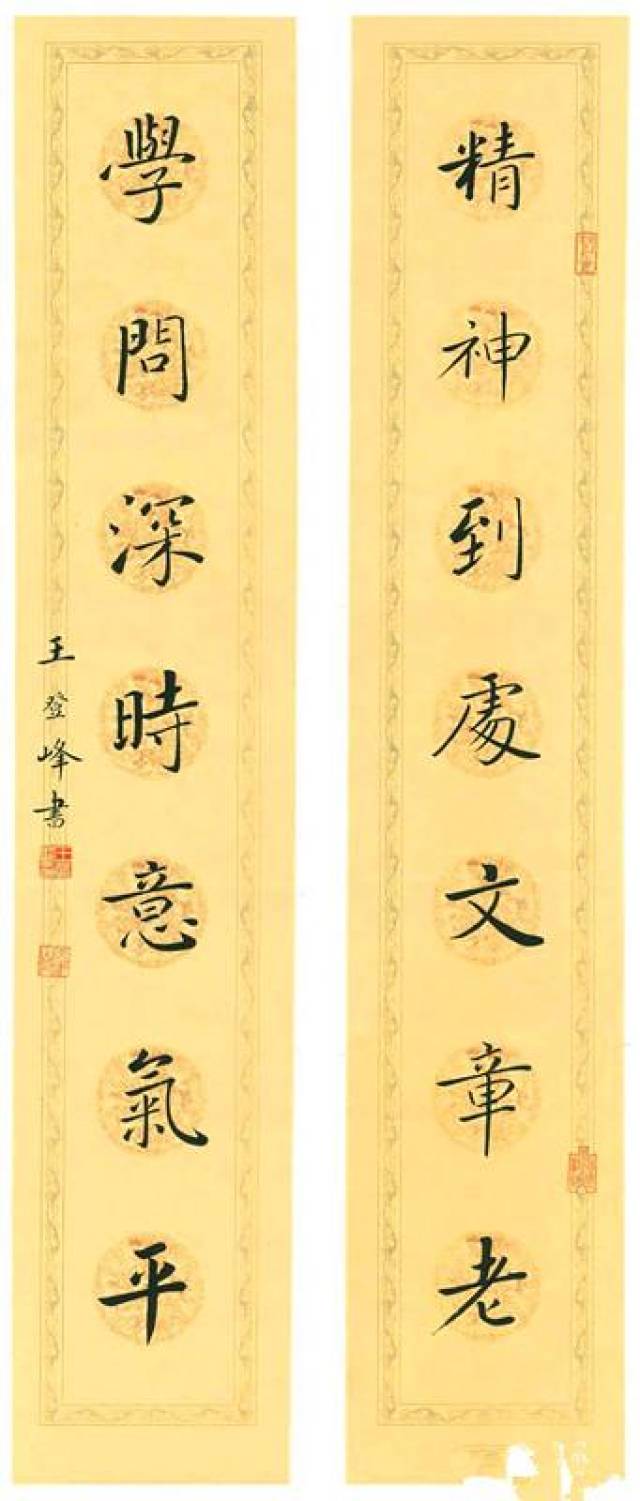 精神到處文章老
學問深時意氣平
王登峰书